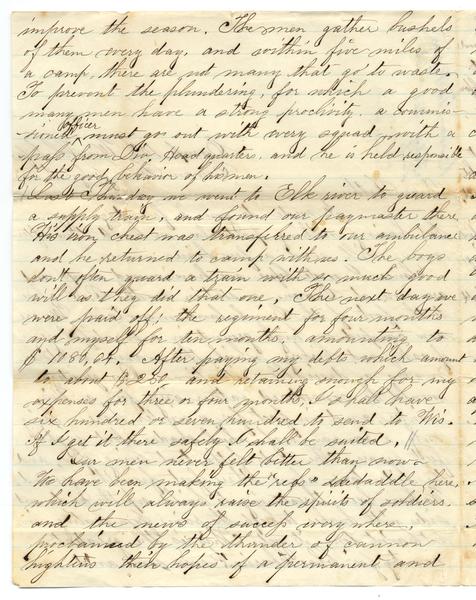 improve the season. The men gather bushels
of them every day, and within five miles of
a camp, there are not many that go to waste.
To prevent the plundering, for which a good
many men have a strong proclivity, a commis-
officer
sioned must go out with every squad, with a
pass from Div. Head quarters, and he is held responsible
for the good behavior of his men.
Last Thursday we went to Elk river to guard
a supply train, and found our paymaster there.
His iron chest was transferred to our ambulance
and he returned to camp with us. The boys
don't often guard a train with so much good
will as they did that one. The next day we
were paid off; the regiment for four months
and myself for ten months, amounting to
$1080,64. After paying my debts which amount
to about $250, and retaining enough for my
expenses for three or four months, I shall have
six hundred or seven hundred to send to Wis.
If I get it there safely I shall be suited. //
Our men never felt better than now
We have been making the "rebs" skedaddle here,
which will always raise the spirits of soldiers.
and the news of success everywhere,
proclaimed by the thunder of cannon
hightens their hopes of a permanent and